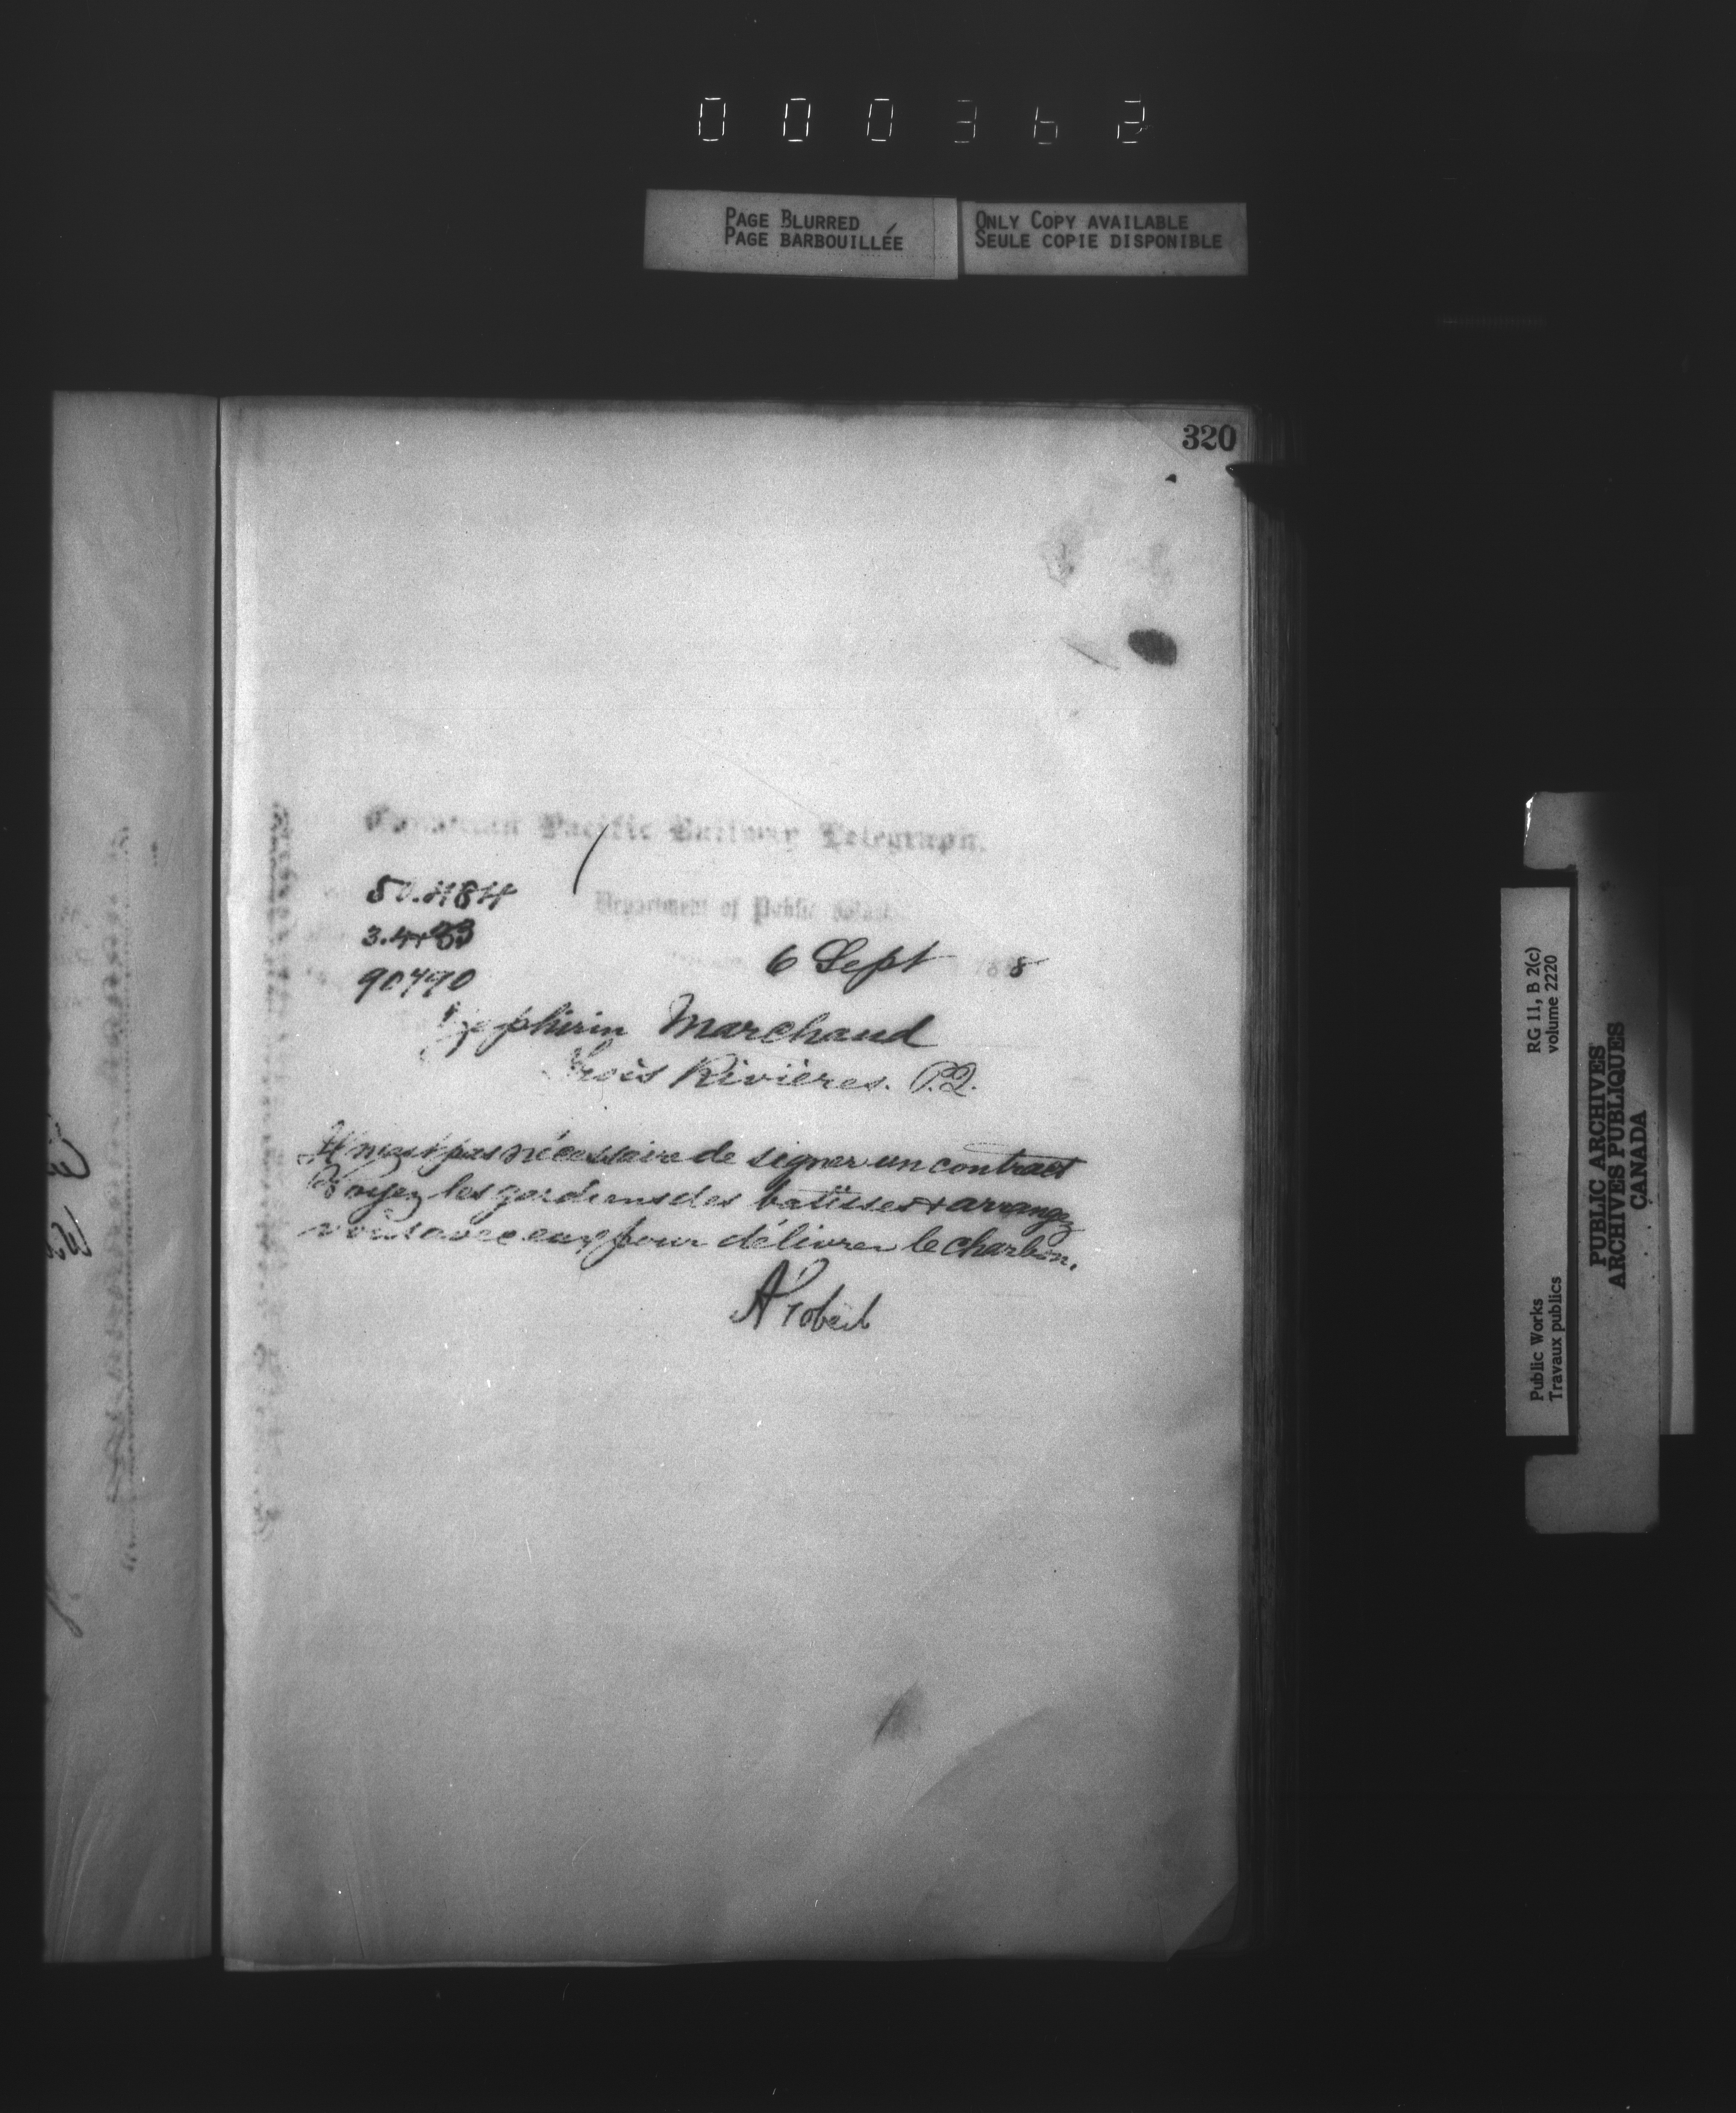 000362
PAGE BLURRED
PAGE BARBOUILLÉE
ONLY COPY AVAILABLE
SEULE COPIE DISPONIBLE
320
Canadian Pacific Railway Telegraph.
Department of Public
6 Sept 188
90490
Zephirin Marchand
Trois Rivières. P.Q.
Il n'est pas nécessaire de signer un contract
Voyez les gardiens des batisses & arrangez
vous avec eux pour délivrer le charbon.
A Gobeil
RG 11, B 2(c)
volume 2220
Public Works
Travaux publics
PUBLIC ARCHIVES
ARCHIVES PUBLIQUES
CANADA